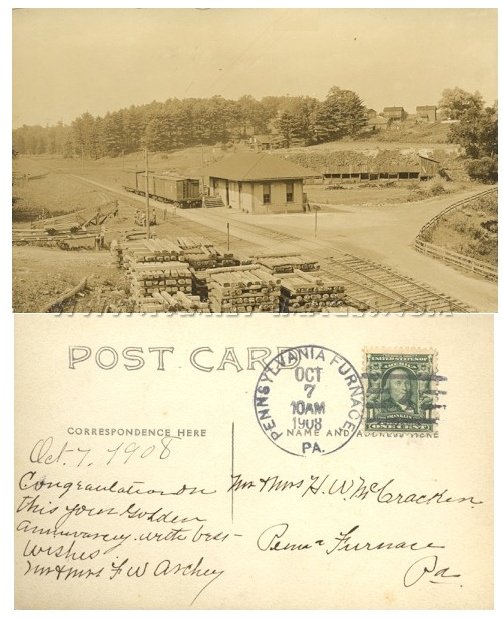 POST CARD
PENNSYLVANIA FURNACE
OCT
7
10AM
1908
PA.
UNITED STATES OF
FRANKLIN
ONE CENT
CORRESPONDENCE HERE
NAME AND ADDRESS HERE
Oct. 7, 1908
Congraulation on
this your Golden
anniversary. with best
Wishes
Mr & Mrs F W Archey
Mr & Mrs H. W. McCracken.
Penna Furnace
Pa